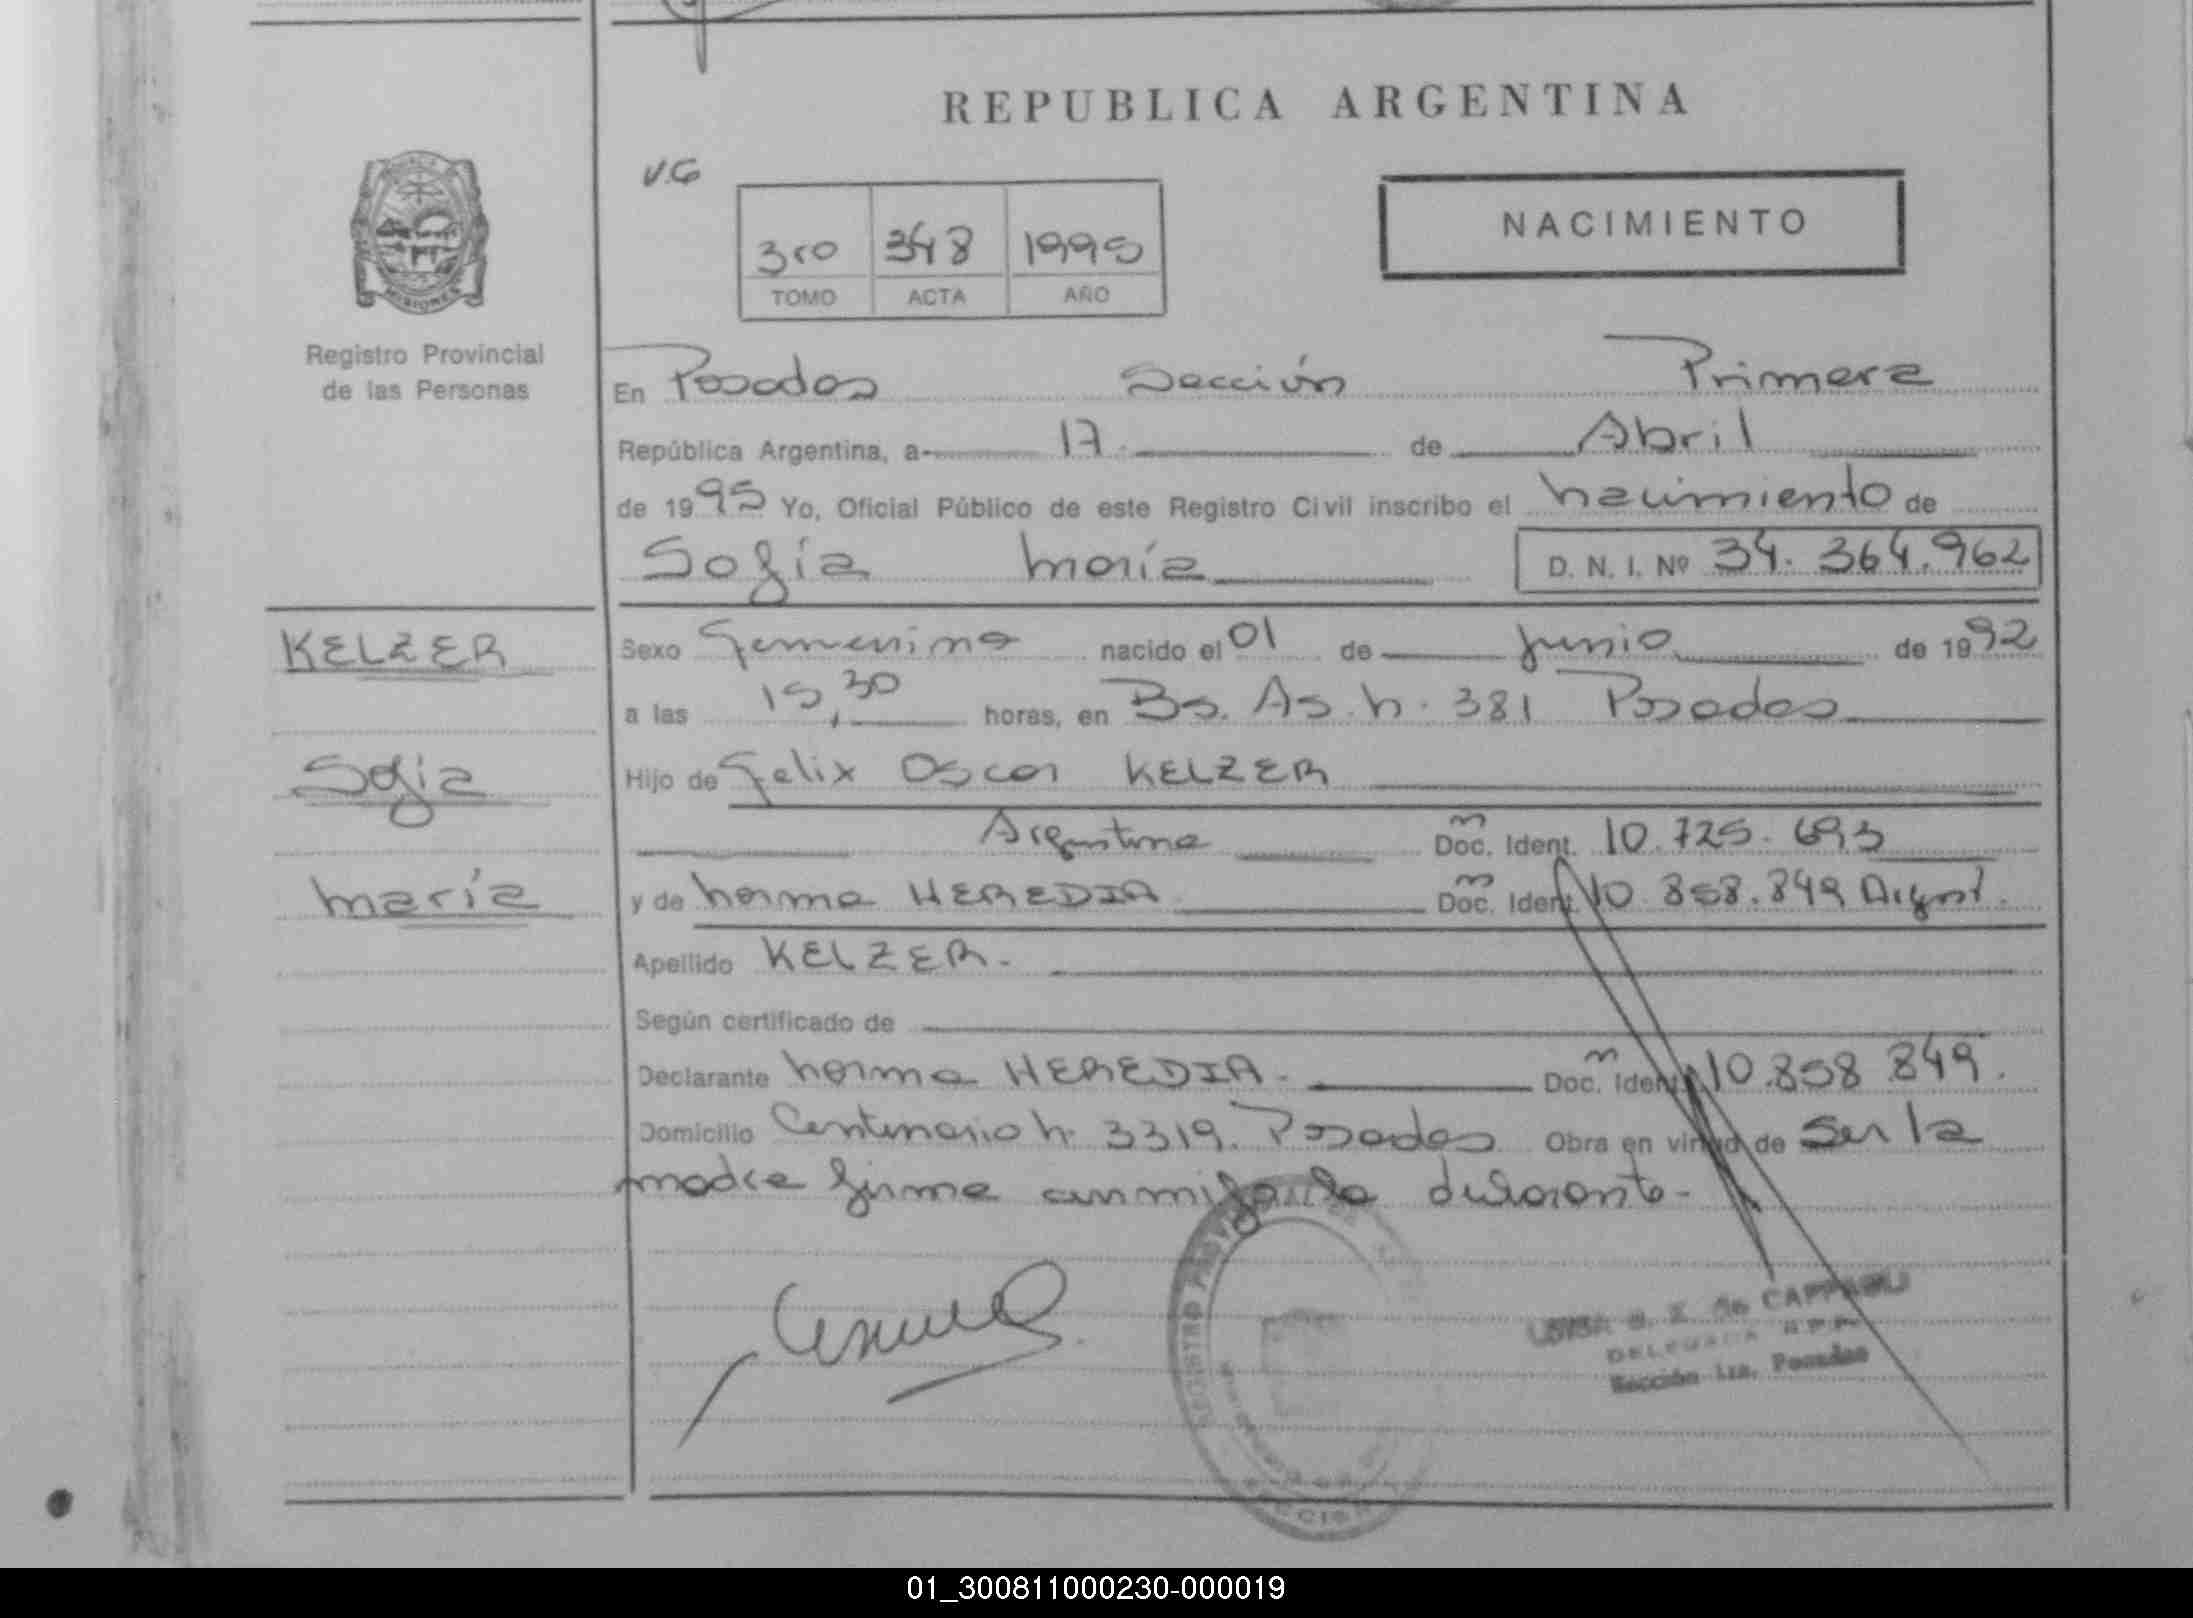 REPUBLICA ARGENTINA
V.G
NACIMIENTO
3ro 348 1995
TOMO ACTA AÑO
MISIONES
Registro Provincial
de las Personas
En Posadas Sección Primera
República Argentina, a 17 de Abril
de 1995 Yo, Oficial Público de este Registro Civil inscribo el nacimiento de
Sofía María D. N. I. Nº 34.364.962
KELZER
Sofia
María
Sexo Femenino nacido el 01 de Junio de 1992
a las 15,30 horas, en Bs. As. N. 381 Posadas
Hijo de Felix Oscar KELZER
Argentina Doc. Ident. 10.725.693
y de Norma HEREDIA Doc. Ident. 10.858.849 Argent.
Apellido KELZER.
Según certificado de
Declarante Norma HEREDIA. Doc. Ident. 10.858.849.
Domicilio Centenario N. 3319. Posadas Obra en virtud de Ser la
madre firma conmigo la
REGISTRO
de CAPPAGLI
DELEGADA R.P.P.
Sección 1ra. Posadas
01_300811000230-000019